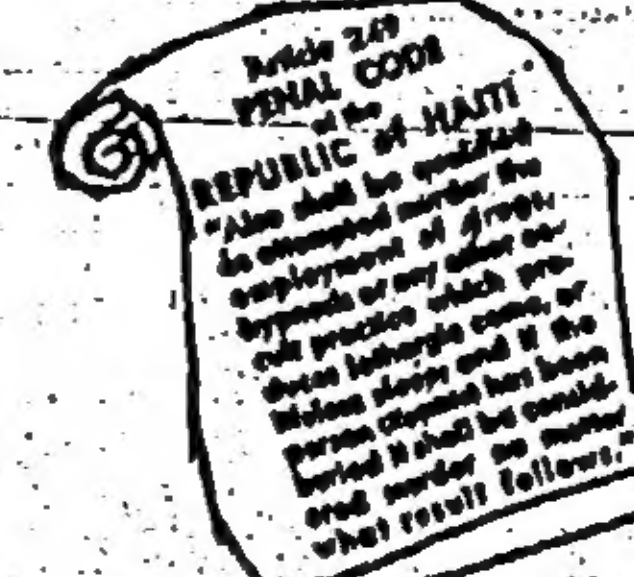 Article 249
PENAL CODE
of the
REPUBLIC of HAITI
"Also shall be qualified
as attempted murder the
employment of drugs,
hypnosis or any other oc-
cult practice which pro-
duces lethargic coma, or
lifeless sleep and if the
person has been
buried it shall be consid-
ered murder no matter
what result follows."